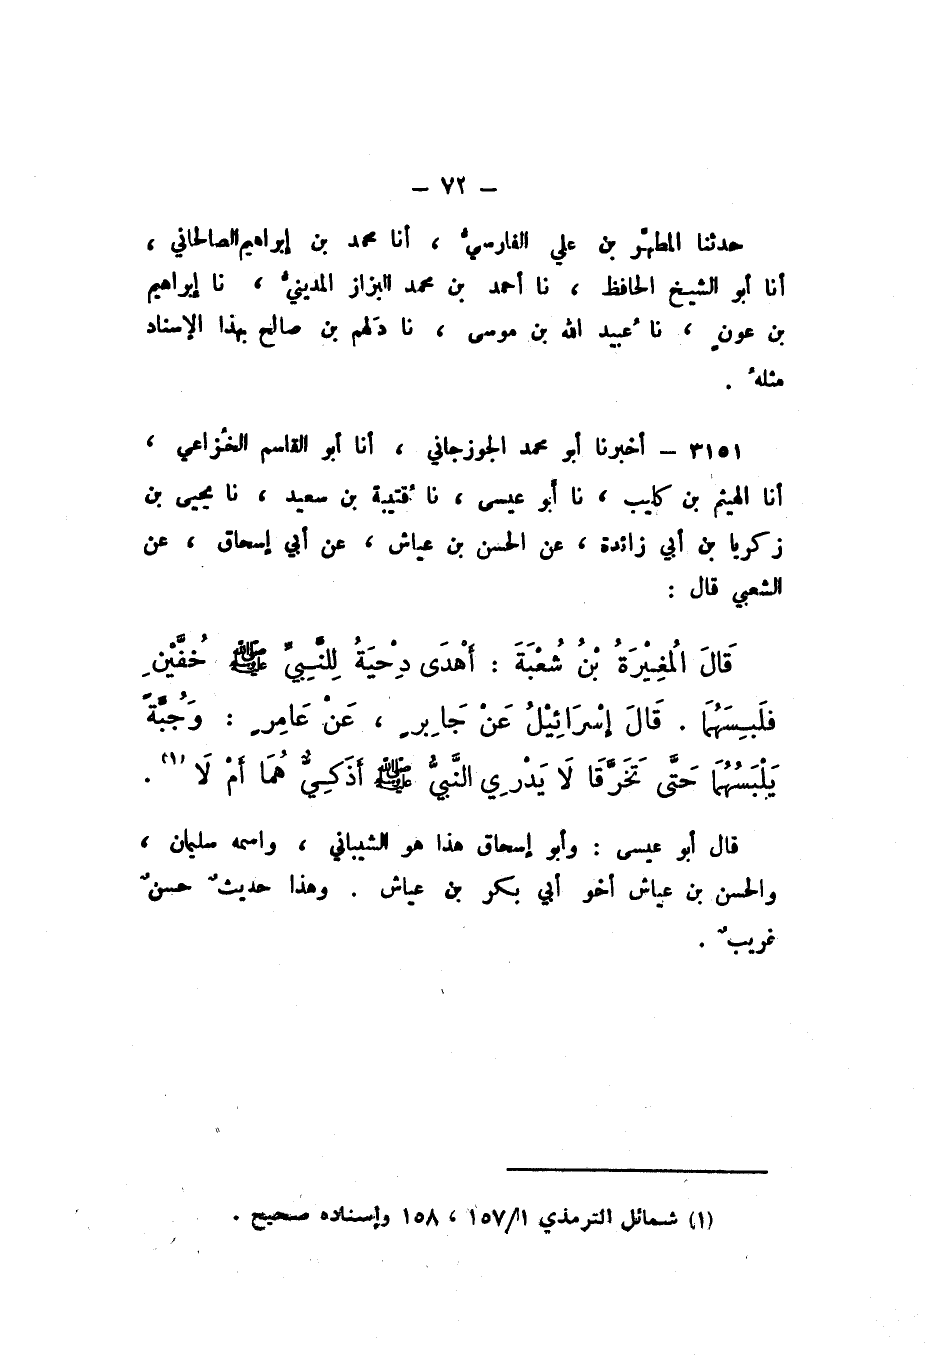 – ٧٢ –
حدثنا المطهّر بن علي الفارسيُّ ، أنا محمد بن إبراهيم الصالحاني ،
أنا أبو الشيخ الحافظ ، نا أحمد بن محمد البزاز المدينيُّ ، نا إبراهيم
بن عونٍ ، نا عُبيد الله بن موسى ، نا دَلهم بن صالح بهذا الإسناد
مثلهُ .
٣١٥١ – أخبرنا أبو محمد الجوزجاني ، أنا أبو القاسم الخُزاعي ،
أنا الهيثم بن كليب ، نا أبو عيسى ، نا قُتيبة بن سعيد ، نا يحيى بن
زكريا بن أبي زائدة ، عن الحسن بن عياش ، عن أبي إسحاق ، عن
الشعبي قال :
قَالَ الْمُغِيْرَةُ بْنُ شُعْبَةَ : أَهْدَى دِحْيَةُ لِلنَّبِيِّ ﷺ خُفَّيْنِ
فَلَبِسَهُمَا . قَالَ إِسْرَائِيْلُ عَنْ جَابِرٍ ، عَنْ عَامِرٍ : وَجُبَّةً
يَلْبَسُهُمَا حَتَّى تَخَرَّقَا لَا يَدْرِي النَّبِيُّ ﷺ أَذَكِيٌّ هُمَا أَمْ لَا (١) .
قال أبو عيسى : وأبو إسحاق هذا هو الشيباني ، واسمه سليمان ،
والحسن بن عياش أخو أبي بكر بن عياش . وهذا حديثٌ حسنٌ
غريبٌ .
(١) شمائل الترمذي ١/١٥٧ ، ١٥٨ وإسناده صحيح .